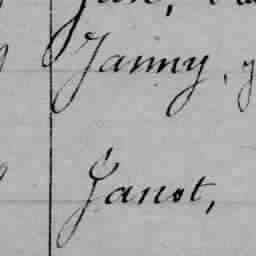 Janny,
Janot,